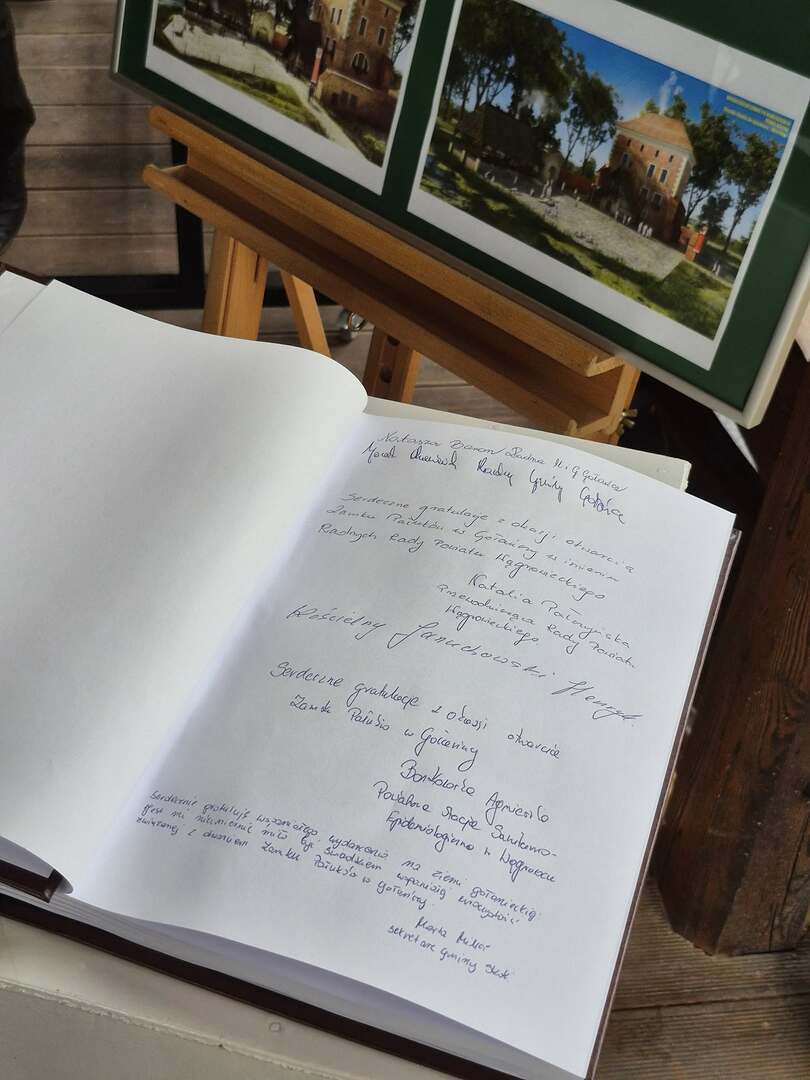 Natasza Baran Radna M. i G. Gołańcz
Marek Radny Gminy Gołańcz
Serdeczne gratulacje z okazji otwarcia
Zamku Pałuków w Gołańczy w imieniu
Radnych Rady Powiatu Wągrowieckiego
Katarzyna
Przewodnicząca Rady Powiatu
Wągrowieckiego
Kościelny Januchowski Henryk.
Serdeczne gratulacje z okazji otwarcia
Zamku w Gołańczy
Agnieszka
Powiatowa Stacja Sanitarno-
Epidemiologiczna w Wągrowcu
Serdecznie gratuluję wspaniałego wydarzenia na ziemi gołanieckiej.
Jest mi niezmiernie miło być świadkiem wspaniałej uroczystości
związanej z otwarciem Zamku w Gołańczy.
Marta
sekretarz gminy